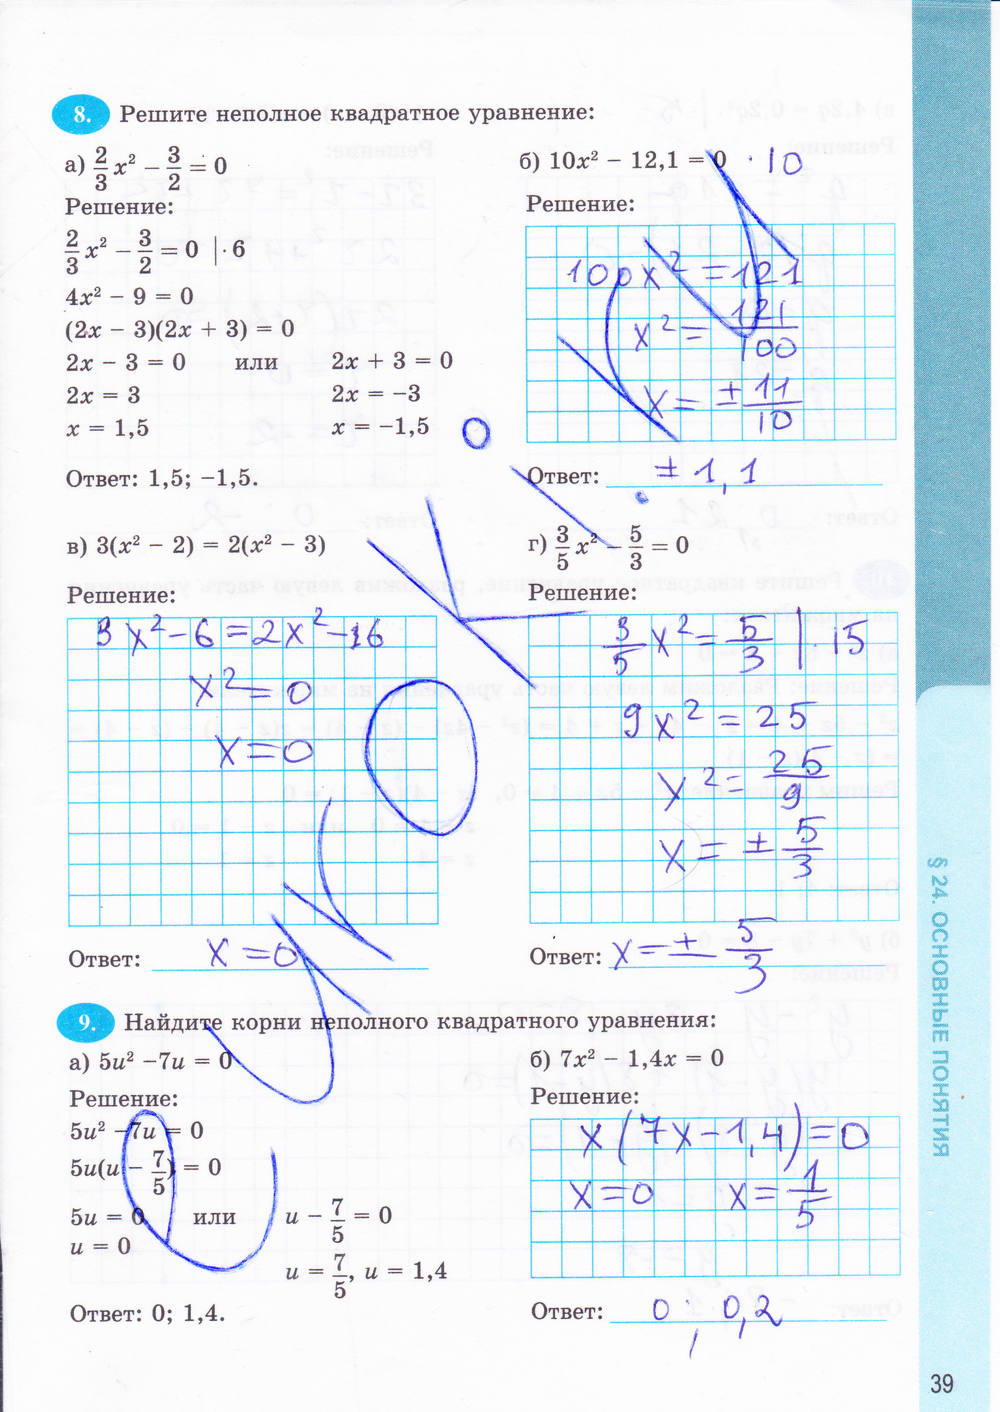 8. Решите неполное квадратное уравнение:
а) 2/3 x² − 3/2 = 0
Решение:
2/3 x² − 3/2 = 0 | · 6
4x² − 9 = 0
(2x − 3)(2x + 3) = 0
2x − 3 = 0 или 2x + 3 = 0
2x = 3 2x = −3
x = 1,5 x = −1,5
Ответ: 1,5; −1,5.
б) 10x² − 12,1 = 0 · 10
Решение:
100x² = 121
x² = 121/100
x = ± 11/10
Ответ: ± 1,1
в) 3(x² − 2) = 2(x² − 3)
Решение:
3x² − 6 = 2x² − 16
x² = 0
x = 0
Ответ: x = 0
г) 3/5 x² − 5/3 = 0
Решение:
3/5 x² = 5/3 | 15
9x² = 25
x² = 25/9
x = ± 5/3
Ответ: x = ± 5/3
9. Найдите корни неполного квадратного уравнения:
а) 5u² −7u = 0
Решение:
5u² −7u = 0
5u(u − 7/5) = 0
5u = 0 или u − 7/5 = 0
u = 0
u = 7/5, u = 1,4
Ответ: 0; 1,4.
б) 7x² − 1,4x = 0
Решение:
x(7x − 1,4) = 0
x = 0 x = 1/5
Ответ: 0; 0,2
§ 24. ОСНОВНЫЕ ПОНЯТИЯ
39